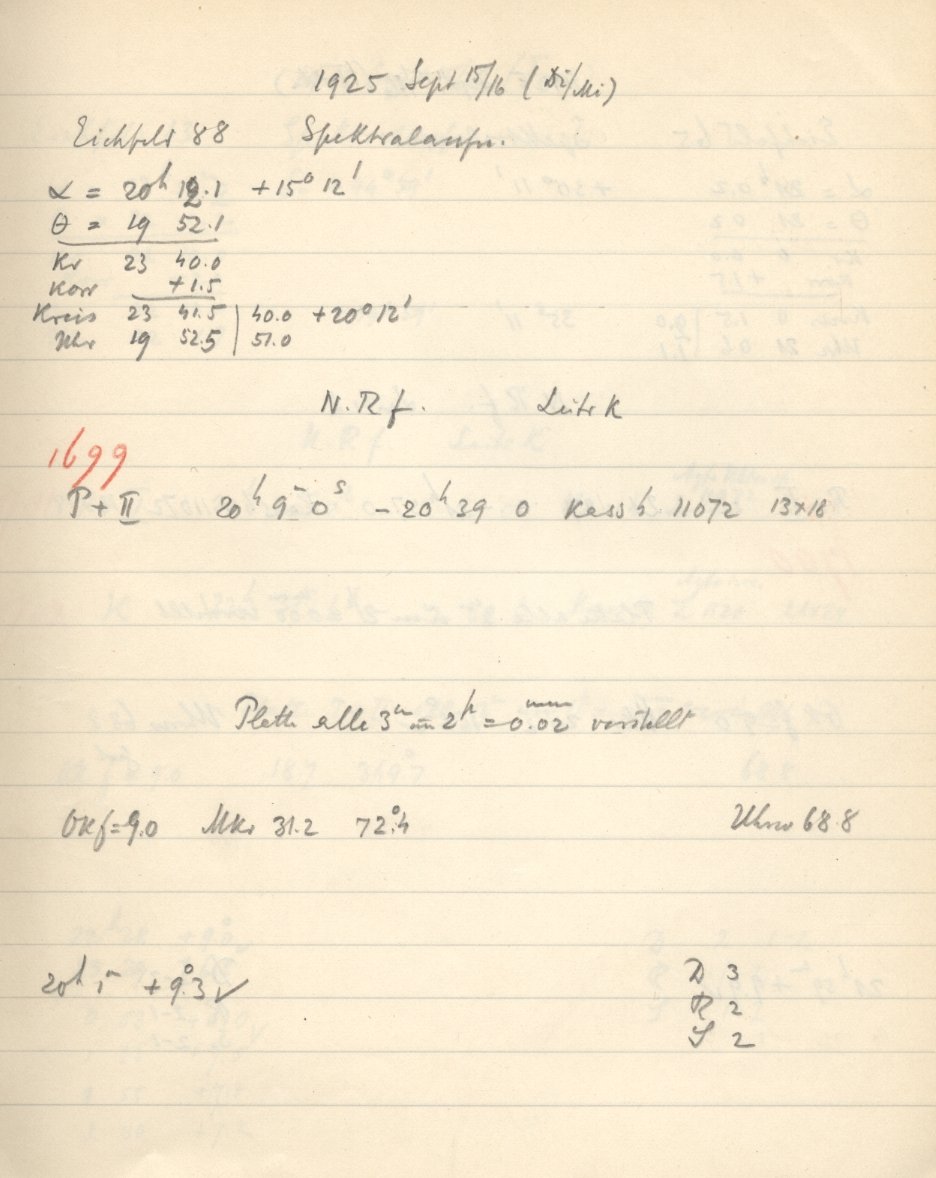 1925 Sept 15/16 (Di/Mi)
Eichfeld 88 Spektralaufn.
α = 20h 12.1 +15° 12'
θ = 19 52.1
Kr 23 40.0
Korr +1.5
Kreis 23 41.5 | 40.0 +20° 12'
Uhr 19 52.5 | 51.0
N.Rf. Leitr K
1699
P + II 20h 9m 0s - 20h 39 0 Kass h. 11072 13x18
Platte alle 3m um 2h = 0.02mm verstellt
OKf = 9.0 MKr 31.2 72°.4 Uhrw 68.8
20h 5m +9°.3 ✓
D 3
R 2
S 2